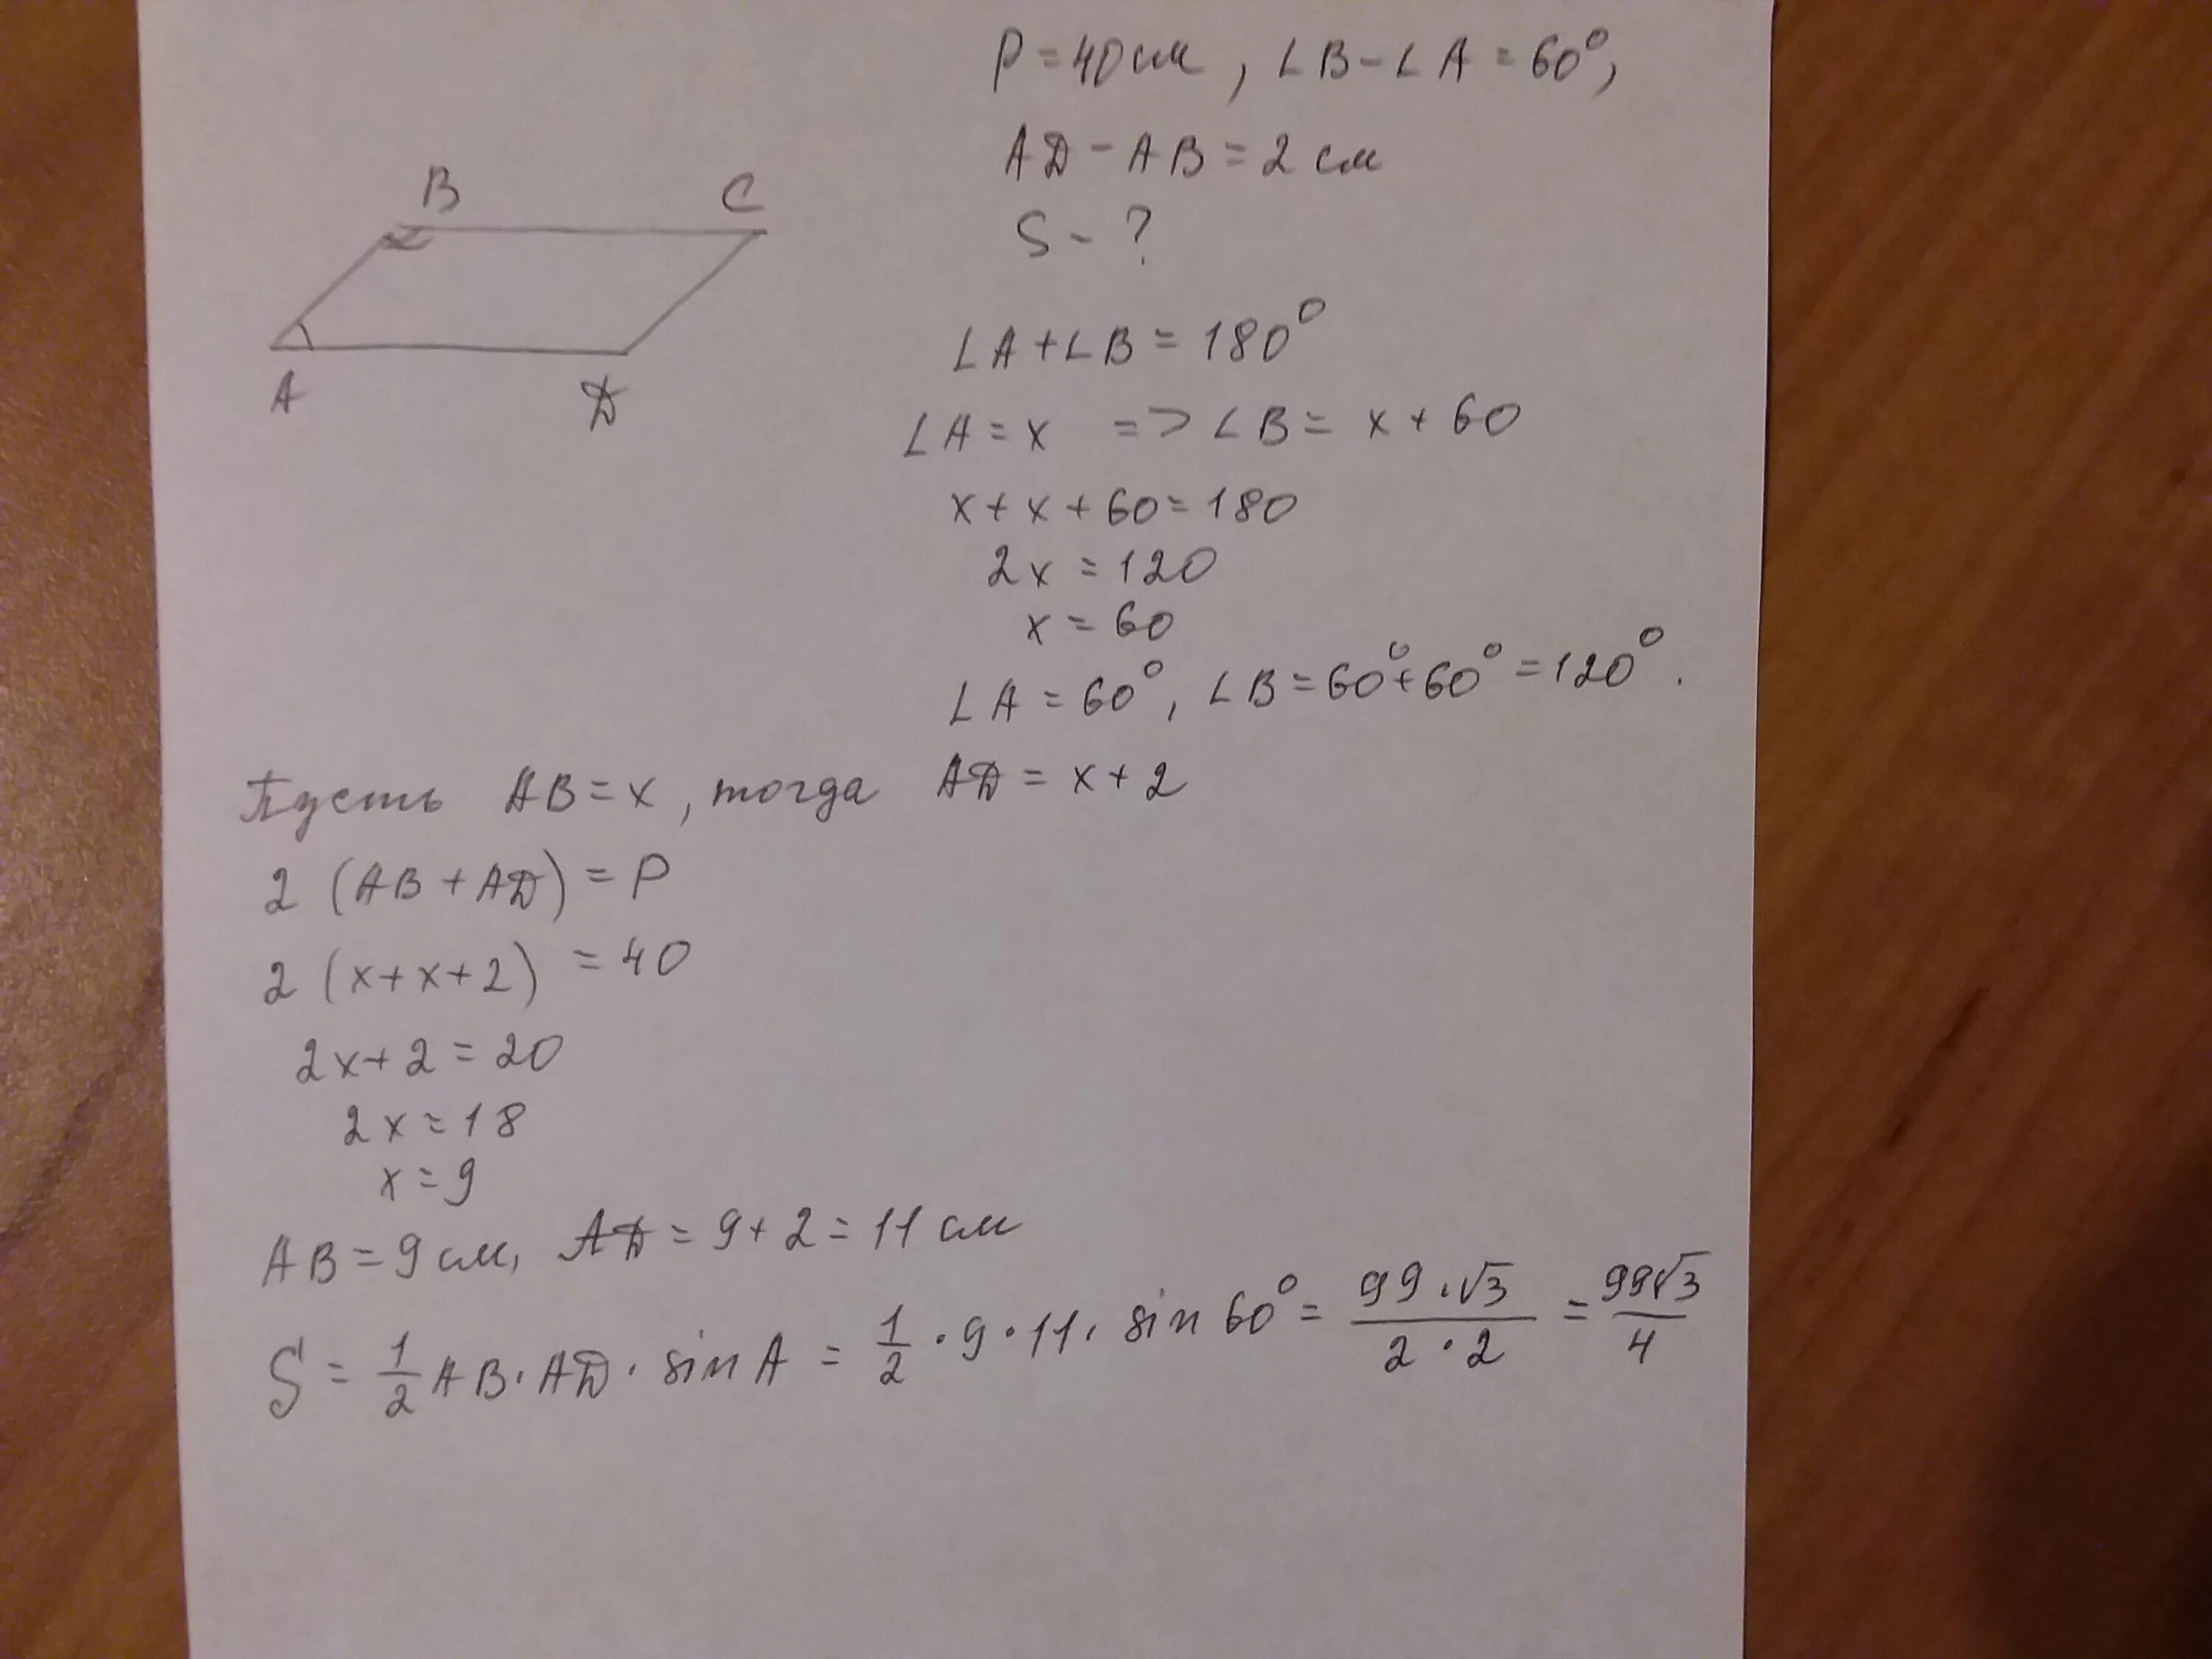 P = 40 см, ∠B - ∠A = 60°,
AD - AB = 2 см
S - ?
B C
A D
∠A + ∠B = 180°
∠A = x => ∠B = x + 60
x + x + 60 = 180
2x = 120
x = 60
∠A = 60°, ∠B = 60° + 60° = 120°.
Пусть AB = x, тогда AD = x + 2
2 (AB + AD) = P
2 (x + x + 2) = 40
2x + 2 = 20
2x = 18
x = 9
AB = 9 см, AD = 9 + 2 = 11 см
S = 1/2 AB · AD · sin A = 1/2 · 9 · 11 · sin 60° = 99 · √3 / 2 · 2 = 99√3 / 4